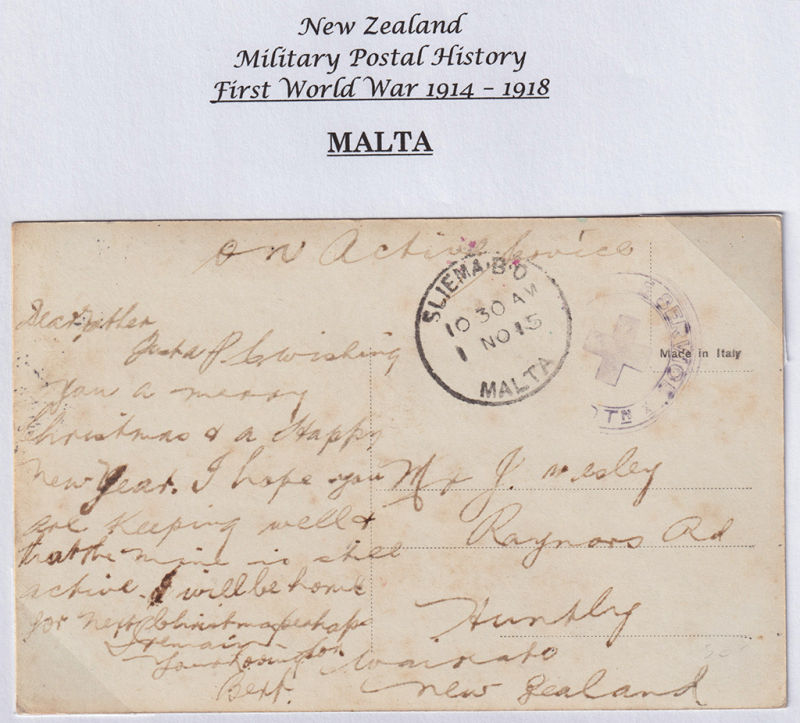 New Zealand
Military Postal History
First World War 1914 – 1918
MALTA
On Active Service
SLIEMA B.O
10 30 AM
1 NO 15
MALTA
Made in Italy
Dear Father
Just a P C wishing
you a merry
Christmas & a Happy
New Year. I hope you
are keeping well &
that the mine is still
active. I will be home
for next Christmas perhaps
I remain
Your loving son
Bert.
Mr J. Wesley
Raynors Rd
Huntly
Waikato
New Zealand